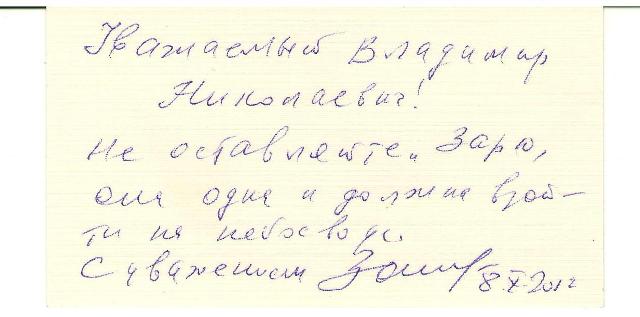 Уважаемый Владимир
Николаевич!
Не оставляйте „Зарю,
она одна и должна взой–
ти на небосводе.
С уважением